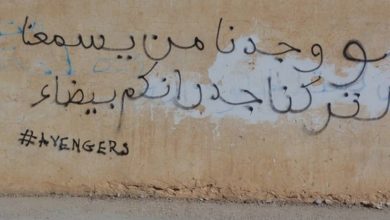 لو وجدنا من يسمعنا
لتركنا جدرانكم بيضاء
#AVENGERS